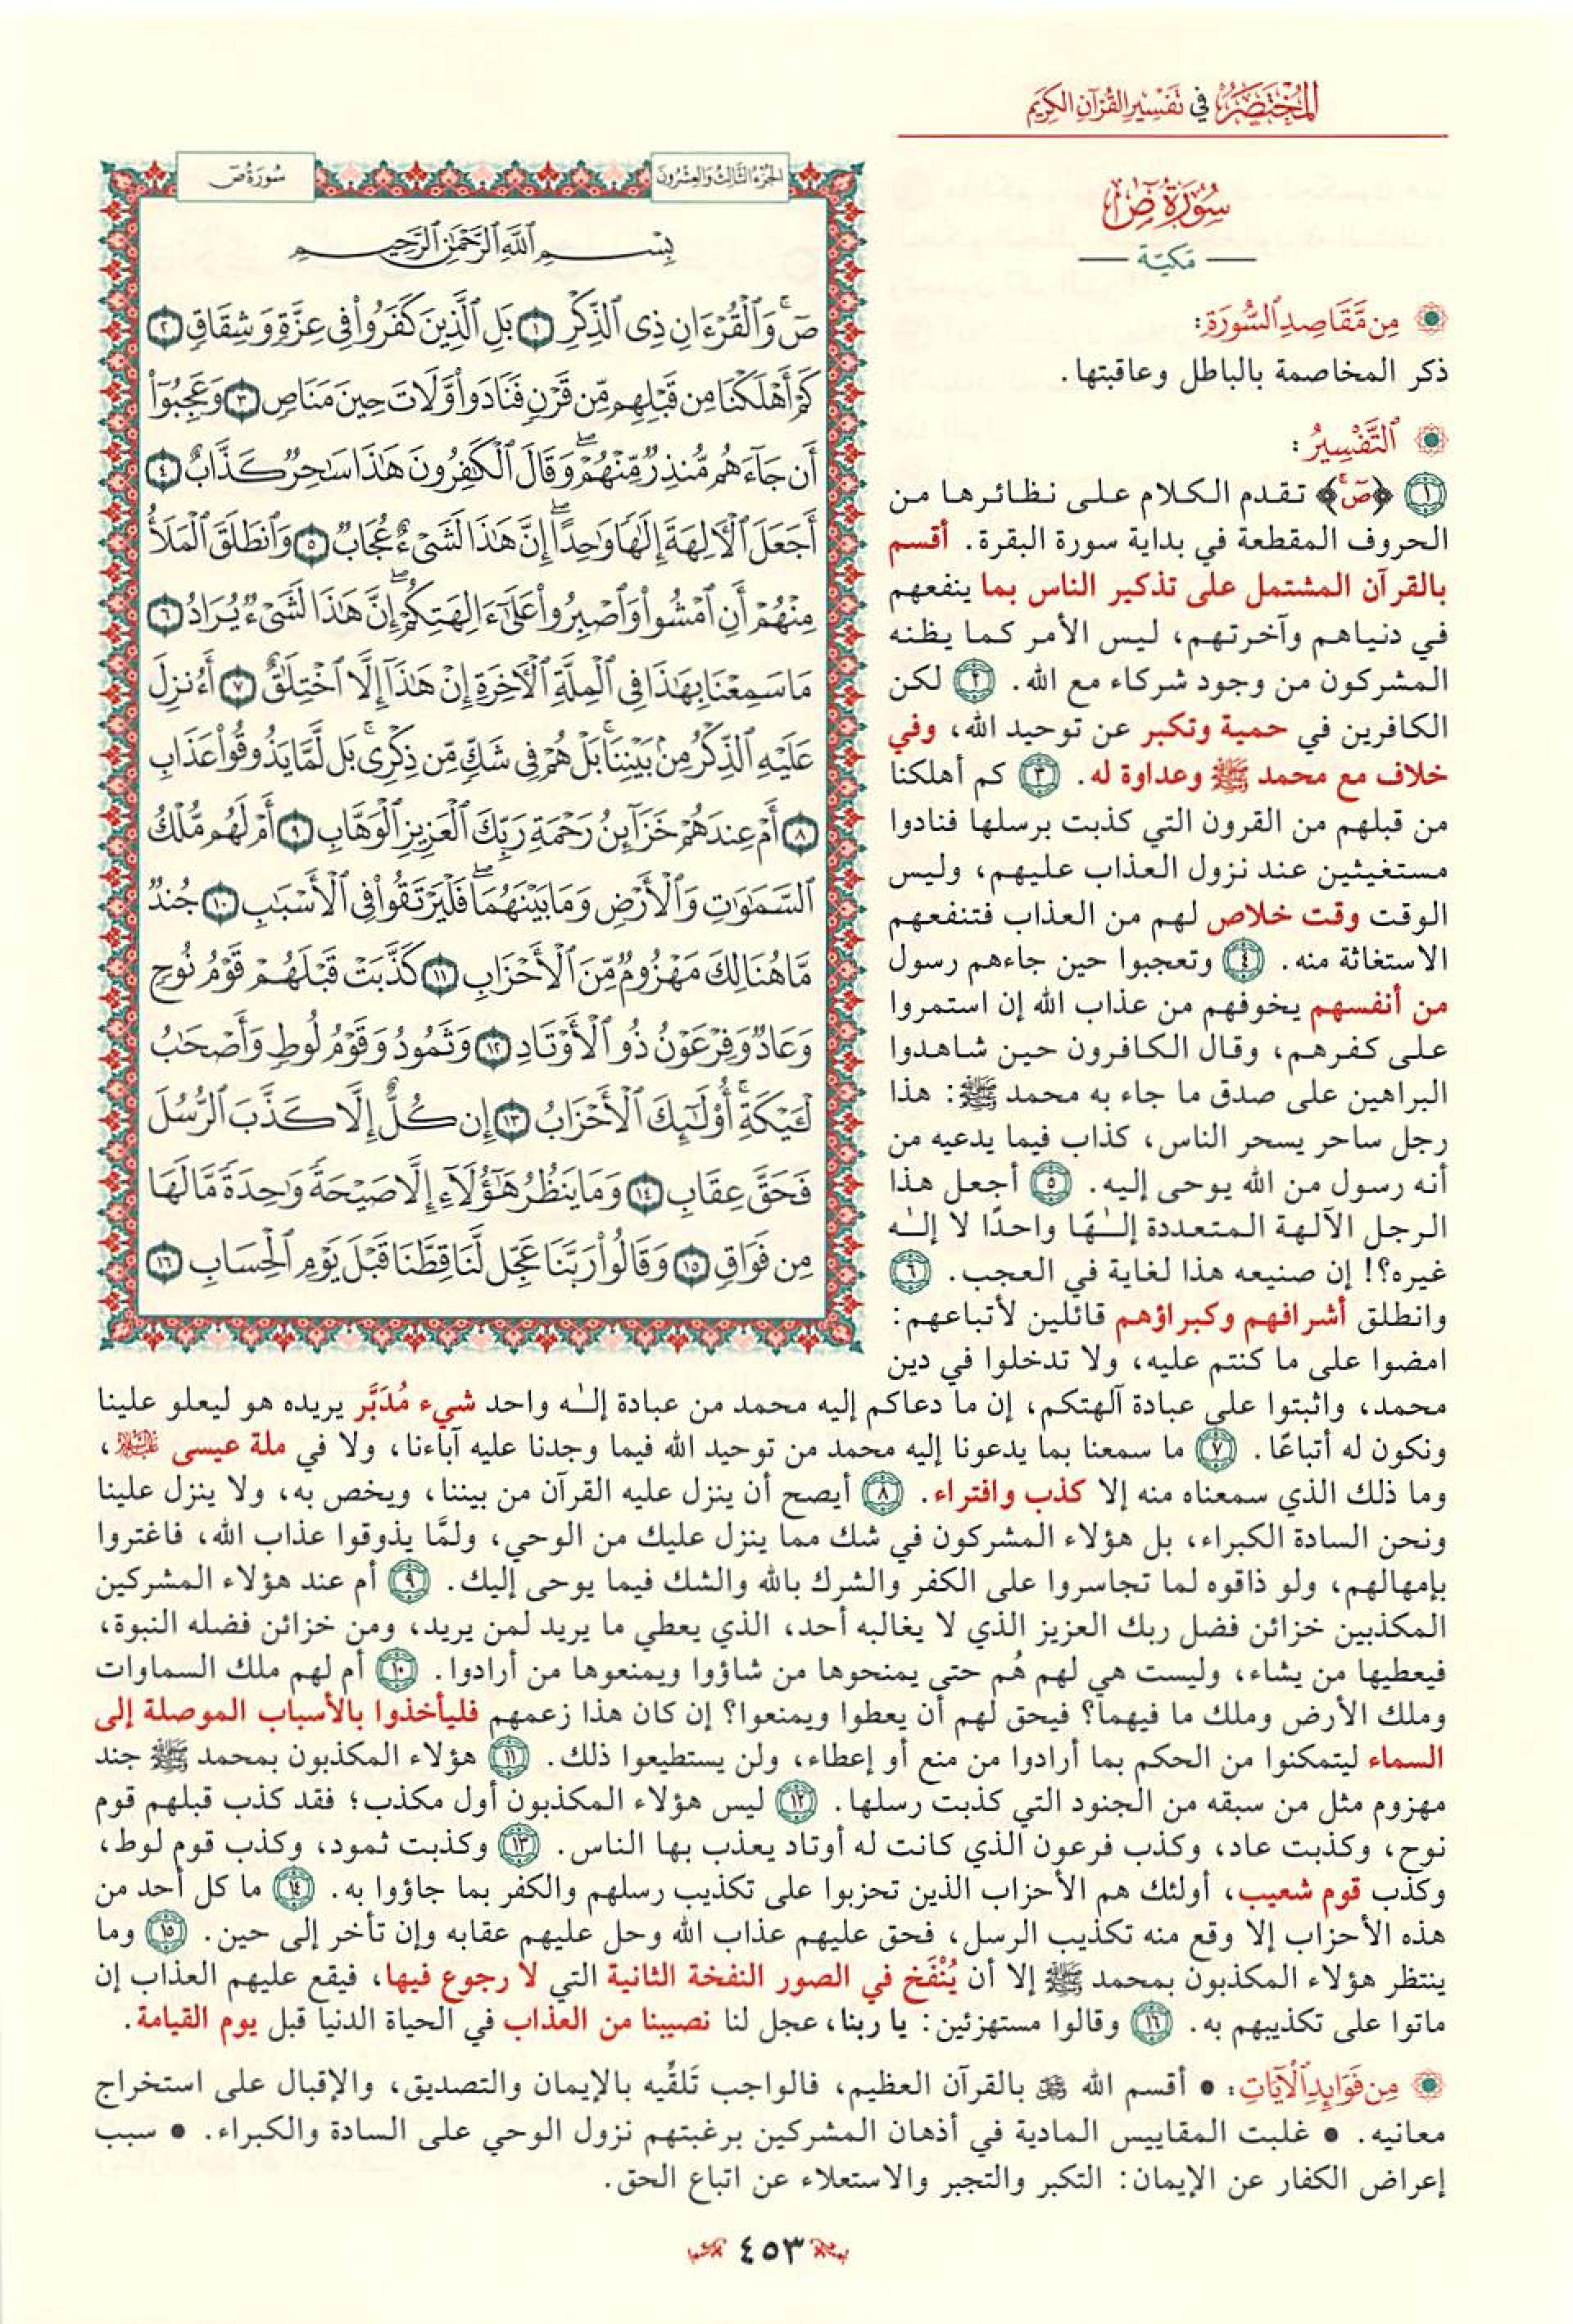 المختصر في تفسير القرآن الكريم
سورة ص
مكية
من مقاصد السورة:
ذكر المخاصمة بالباطل وعاقبتها.
التفسير:
١ ﴿صٓ﴾ تقدم الكلام على نظائرها من
الحروف المقطعة في بداية سورة البقرة. أقسم
بالقرآن المشتمل على تذكير الناس بما ينفعهم
في دنياهم وآخرتهم، ليس الأمر كما يظنه
المشركون من وجود شركاء مع الله. ٢ لكن
الكافرين في حمية وتكبر عن توحيد الله، وفي
خلاف مع محمد ﷺ وعداوة له. ٣ كم أهلكنا
من قبلهم من القرون التي كذبت برسلها فنادوا
مستغيثين عند نزول العذاب عليهم، وليس
الوقت وقت خلاص لهم من العذاب فتنفعهم
الاستغاثة منه. ٤ وتعجبوا حين جاءهم رسول
من أنفسهم يخوفهم من عذاب الله إن استمروا
على كفرهم، وقال الكافرون حين شاهدوا
البراهين على صدق ما جاء به محمد ﷺ: هذا
رجل ساحر يسحر الناس، كذاب فيما يدعيه من
أنه رسول من الله يوحى إليه. ٥ أجعل هذا
الرجل الآلهة المتعددة إلـٰهًا واحدًا لا إلـٰه
غيره؟! إن صنيعه هذا لغاية في العجب. ٦
وانطلق أشرافهم وكبراؤهم قائلين لأتباعهم:
امضوا على ما كنتم عليه، ولا تدخلوا في دين
الجزء الثالث والعشرون
سورة ص
بِسْمِ ٱللَّهِ ٱلرَّحْمَٰنِ ٱلرَّحِيمِ
صٓۚ وَٱلْقُرْءَانِ ذِى ٱلذِّكْرِ ١ بَلِ ٱلَّذِينَ كَفَرُوا۟ فِى عِزَّةٍ وَشِقَاقٍ ٢
كَمْ أَهْلَكْنَا مِن قَبْلِهِم مِّن قَرْنٍ فَنَادَوا۟ وَّلَاتَ حِينَ مَنَاصٍ ٣ وَعَجِبُوٓا۟
أَن جَآءَهُم مُّنذِرٌ مِّنْهُمْۖ وَقَالَ ٱلْكَٰفِرُونَ هَٰذَا سَٰحِرٌ كَذَّابٌ ٤
أَجَعَلَ ٱلْءَالِهَةَ إِلَٰهًا وَٰحِدًاۖ إِنَّ هَٰذَا لَشَىْءٌ عُجَابٌ ٥ وَٱنطَلَقَ ٱلْمَلَأُ
مِنْهُمْ أَنِ ٱمْشُوا۟ وَٱصْبِرُوا۟ عَلَىٰٓ ءَالِهَتِكُمْۖ إِنَّ هَٰذَا لَشَىْءٌ يُرَادُ ٦
مَا سَمِعْنَا بِهَٰذَا فِى ٱلْمِلَّةِ ٱلْءَاخِرَةِ إِنْ هَٰذَآ إِلَّا ٱخْتِلَٰقٌ ٧ أَءُنزِلَ
عَلَيْهِ ٱلذِّكْرُ مِنۢ بَيْنِنَاۚ بَلْ هُمْ فِى شَكٍّ مِّن ذِكْرِىۚ بَل لَّمَّا يَذُوقُوا۟ عَذَابِ
٨ أَمْ عِندَهُمْ خَزَآئِنُ رَحْمَةِ رَبِّكَ ٱلْعَزِيزِ ٱلْوَهَّابِ ٩ أَمْ لَهُم مُّلْكُ
ٱلسَّمَٰوَٰتِ وَٱلْأَرْضِ وَمَا بَيْنَهُمَاۖ فَلْيَرْتَقُوا۟ فِى ٱلْأَسْبَٰبِ ١٠ جُندٌ
مَّا هُنَالِكَ مَهْزُومٌ مِّنَ ٱلْأَحْزَابِ ١١ كَذَّبَتْ قَبْلَهُمْ قَوْمُ نُوحٍ
وَعَادٌ وَفِرْعَوْنُ ذُو ٱلْأَوْتَادِ ١٢ وَثَمُودُ وَقَوْمُ لُوطٍ وَأَصْحَٰبُ
لْـَٔيْكَةِۚ أُو۟لَٰٓئِكَ ٱلْأَحْزَابُ ١٣ إِن كُلٌّ إِلَّا كَذَّبَ ٱلرُّسُلَ
فَحَقَّ عِقَابِ ١٤ وَمَا يَنظُرُ هَٰٓؤُلَآءِ إِلَّا صَيْحَةً وَٰحِدَةً مَّا لَهَا
مِن فَوَاقٍ ١٥ وَقَالُوا۟ رَبَّنَا عَجِّل لَّنَا قِطَّنَا قَبْلَ يَوْمِ ٱلْحِسَابِ ١٦
محمد، واثبتوا على عبادة آلهتكم، إن ما دعاكم إليه محمد من عبادة إلـٰه واحد شيء مُدَبَّر يريده هو ليعلو علينا
ونكون له أتباعًا. ٧ ما سمعنا بما يدعونا إليه محمد من توحيد الله فيما وجدنا عليه آباءنا، ولا في ملة عيسى عليه السلام،
وما ذلك الذي سمعناه منه إلا كذب وافتراء. ٨ أيصح أن ينزل عليه القرآن من بيننا، ويخص به، ولا ينزل علينا
ونحن السادة الكبراء، بل هؤلاء المشركون في شك مما ينزل عليك من الوحي، ولمَّا يذوقوا عذاب الله، فاغتروا
بإمهالهم، ولو ذاقوه لما تجاسروا على الكفر والشرك بالله والشك فيما يوحى إليك. ٩ أم عند هؤلاء المشركين
المكذبين خزائن فضل ربك العزيز الذي لا يغالبه أحد، الذي يعطي ما يريد لمن يريد، ومن خزائن فضله النبوة،
فيعطيها من يشاء، وليست هي لهم هُم حتى يمنحوها من شاؤوا ويمنعوها من أرادوا. ١٠ أم لهم ملك السماوات
وملك الأرض وملك ما فيهما؟ فيحق لهم أن يعطوا ويمنعوا؟ إن كان هذا زعمهم فليأخذوا بالأسباب الموصلة إلى
السماء ليتمكنوا من الحكم بما أرادوا من منع أو إعطاء، ولن يستطيعوا ذلك. ١١ هؤلاء المكذبون بمحمد ﷺ جند
مهزوم مثل من سبقه من الجنود التي كذبت رسلها. ١٢ ليس هؤلاء المكذبون أول مكذب؛ فقد كذب قبلهم قوم
نوح، وكذبت عاد، وكذب فرعون الذي كانت له أوتاد يعذب بها الناس. ١٣ وكذبت ثمود، وكذب قوم لوط،
وكذب قوم شعيب، أولئك هم الأحزاب الذين تحزبوا على تكذيب رسلهم والكفر بما جاؤوا به. ١٤ ما كل أحد من
هذه الأحزاب إلا وقع منه تكذيب الرسل، فحق عليهم عذاب الله وحل عليهم عقابه وإن تأخر إلى حين. ١٥ وما
ينتظر هؤلاء المكذبون بمحمد ﷺ إلا أن يُنْفَخ في الصور النفخة الثانية التي لا رجوع فيها، فيقع عليهم العذاب إن
ماتوا على تكذيبهم به. ١٦ وقالوا مستهزئين: يا ربنا، عجل لنا نصيبنا من العذاب في الحياة الدنيا قبل يوم القيامة.
من فوائد الآيات: • أقسم الله ﷻ بالقرآن العظيم، فالواجب تَلقِّيه بالإيمان والتصديق، والإقبال على استخراج
معانيه. • غلبت المقاييس المادية في أذهان المشركين برغبتهم نزول الوحي على السادة والكبراء. • سبب
إعراض الكفار عن الإيمان: التكبر والتجبر والاستعلاء عن اتباع الحق.
٤٥٣